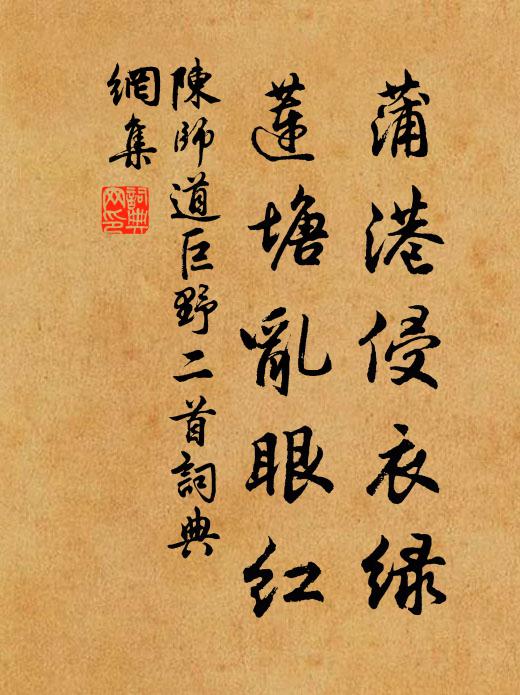 蒲港侵衣绿
莲塘亂眼红
陳师道巨野二首詞典
網集
詞典
网印